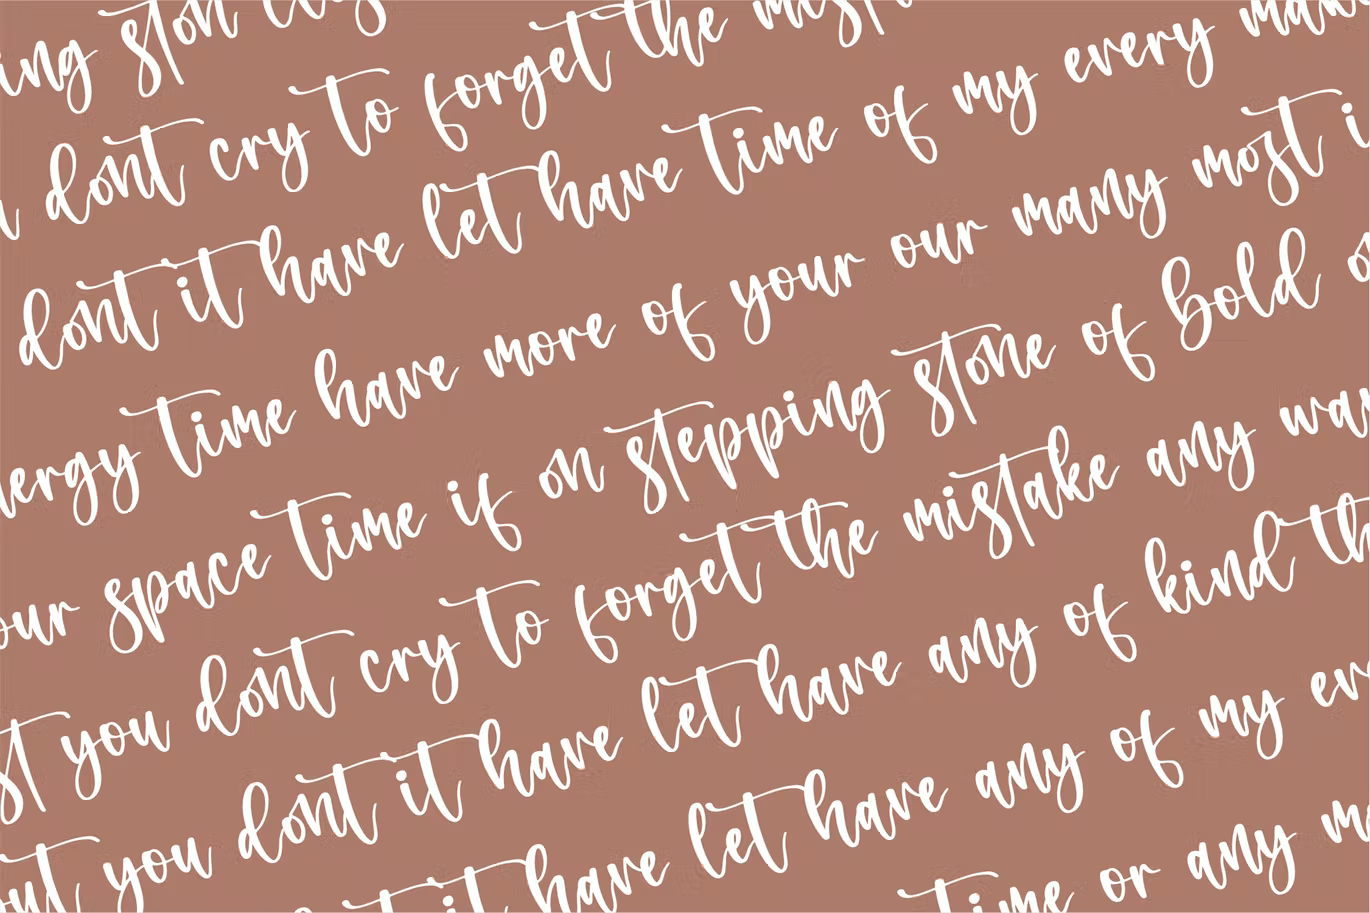 dont cry to forget the
dont it have let have time of my every
time have more of your our many most
space time if on stepping stone of bold
you dont cry to forget the mistake any
you dont it have let have any of kind
it have let have any of my
time or any